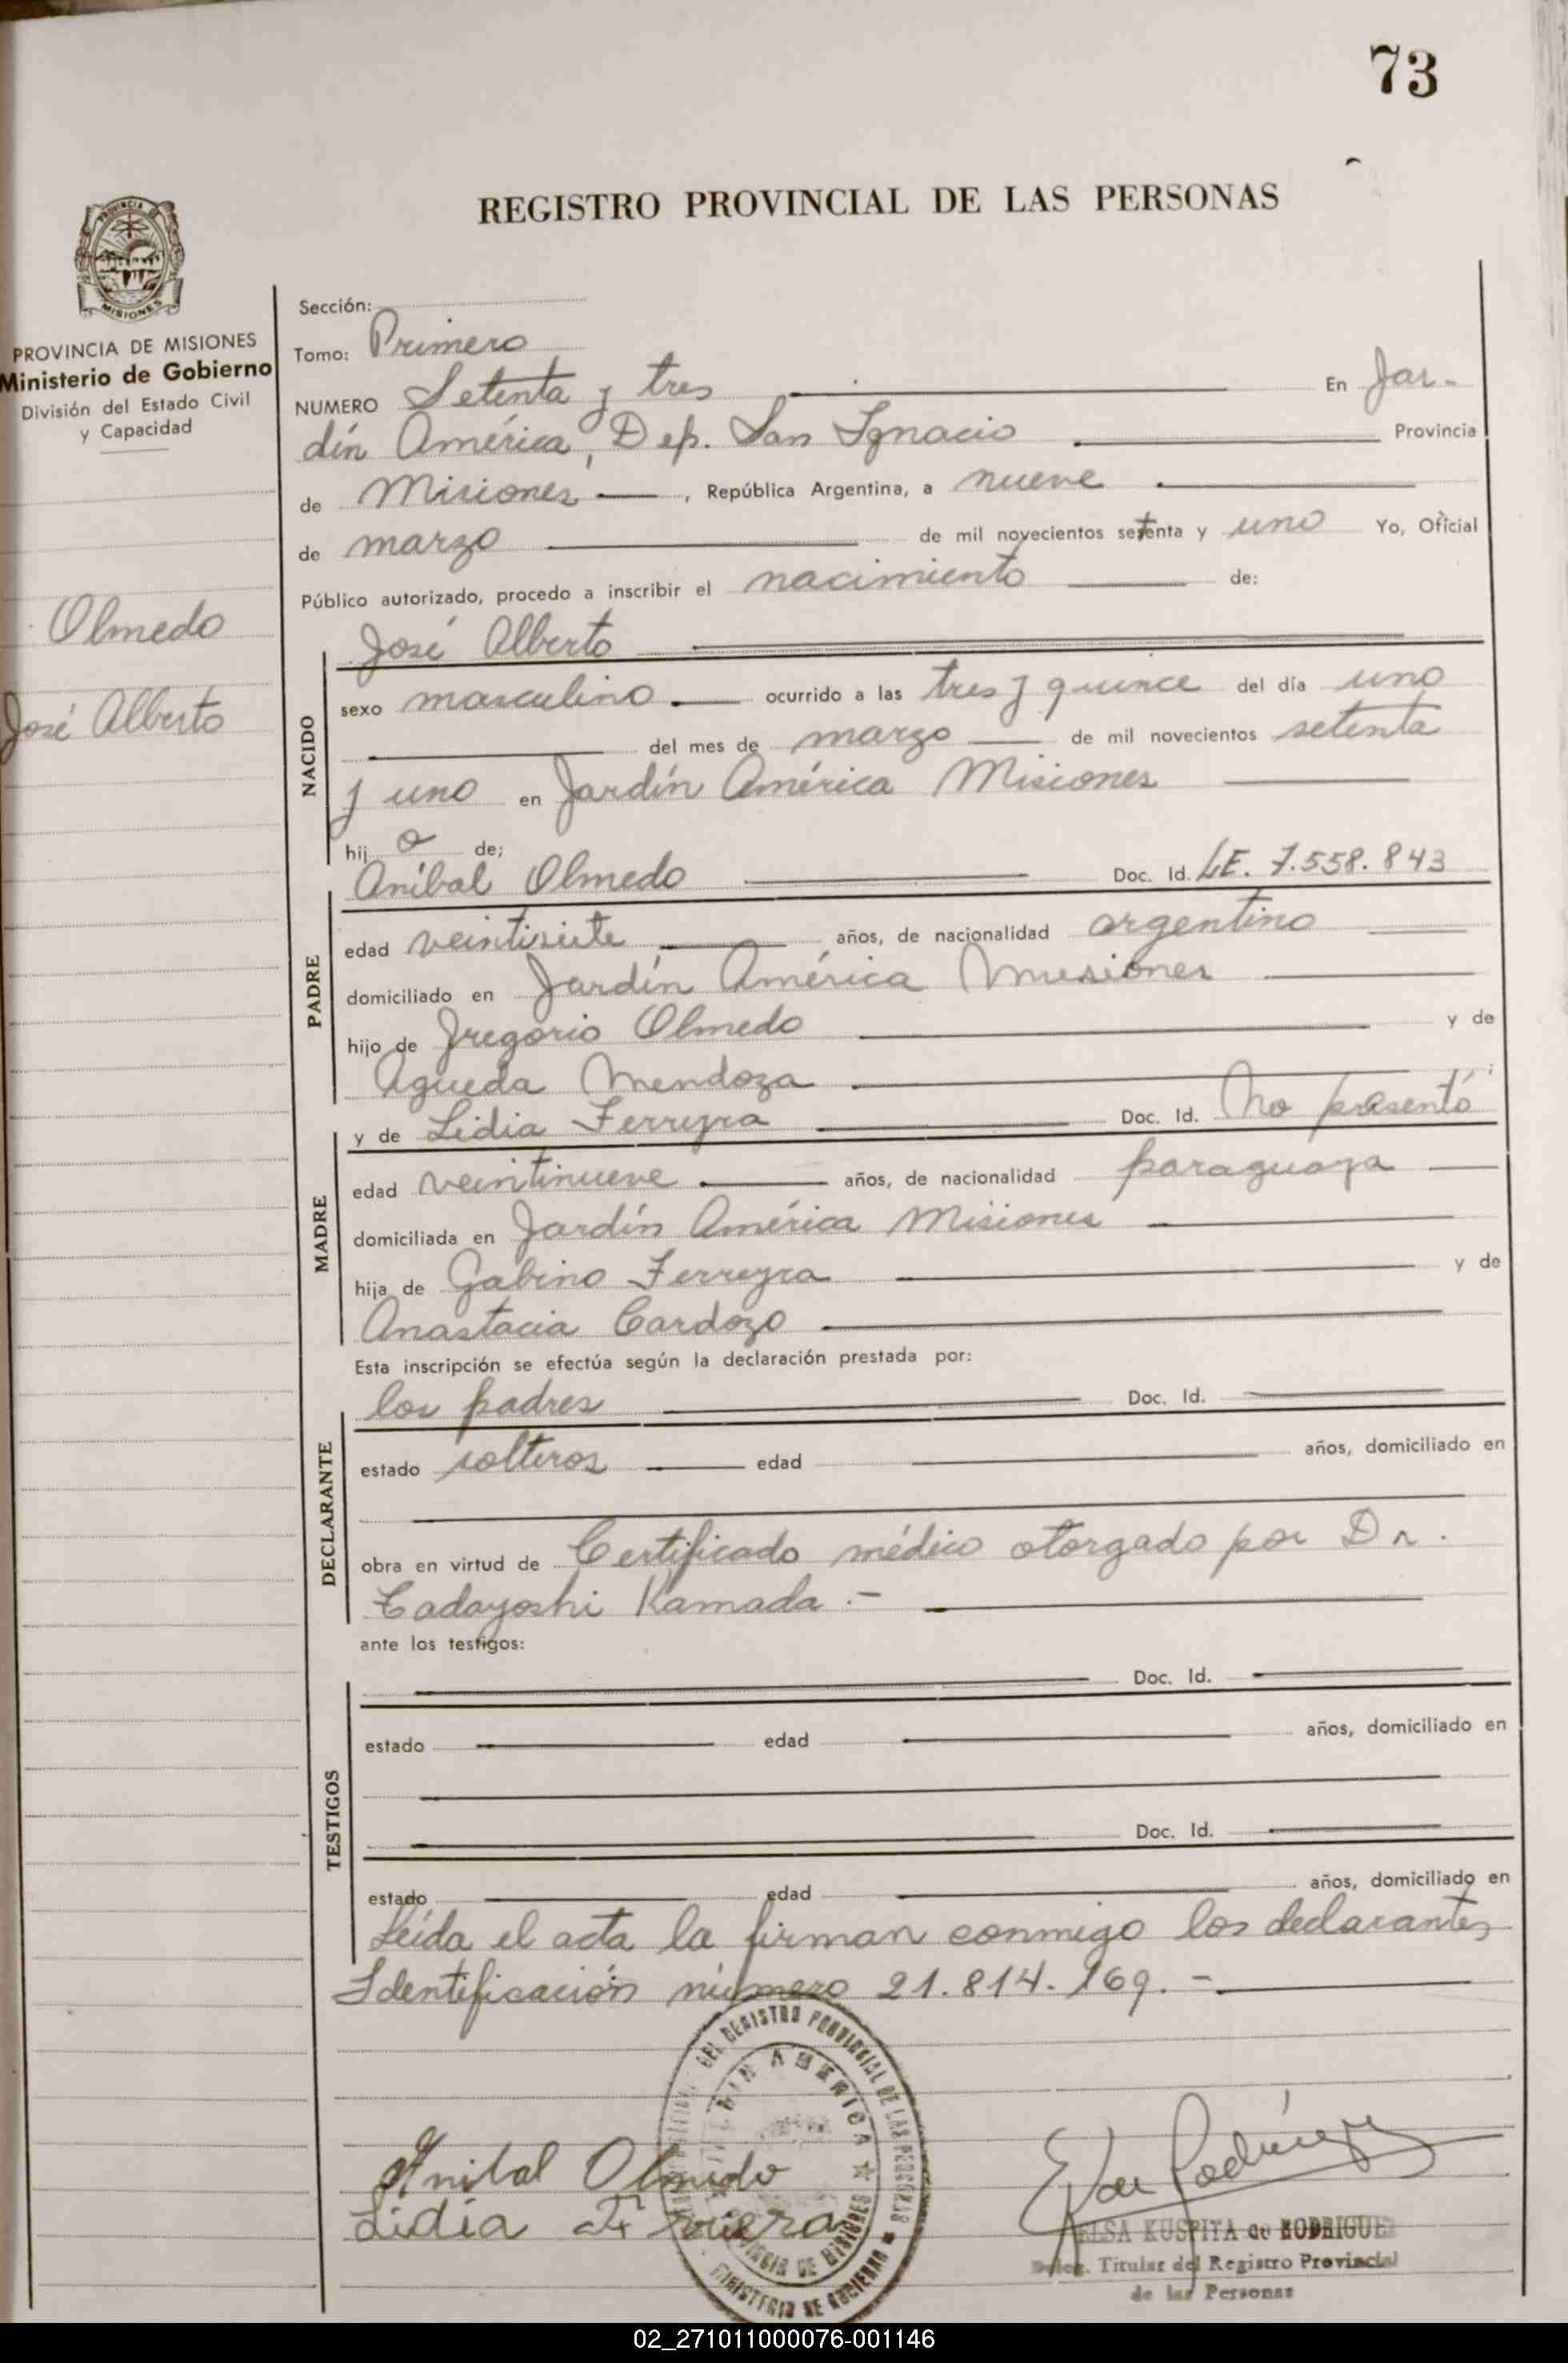 73
REGISTRO PROVINCIAL DE LAS PERSONAS
PROVINCIA DE MISIONES
Ministerio de Gobierno
División del Estado Civil
y Capacidad
Olmedo
José Alberto
Sección:
Tomo: Primero
NUMERO Setenta y tres En Jar-
dín América, Dep. San Ignacio Provincia
de Misiones, República Argentina, a nueve
de marzo de mil novecientos setenta y uno Yo, Oficial
Público autorizado, procedo a inscribir el nacimiento de:
NACIDO
José Alberto
sexo masculino ocurrido a las tres y quince del día uno
del mes de marzo de mil novecientos setenta
y uno en Jardín América Misiones
hijo de;
PADRE
Aníbal Olmedo Doc. Id. LE. 7.558.843
edad veintisiete años, de nacionalidad argentino
domiciliado en Jardín América Misiones
hijo de Gregorio Olmedo y de
Agueda Mendoza
MADRE
y de Lidia Ferreyra Doc. Id. No presentó
edad veintinueve años, de nacionalidad paraguaya
domiciliada en Jardín América Misiones
hija de Gabino Ferreyra y de
Anastacia Cardozo
Esta inscripción se efectúa según la declaración prestada por:
DECLARANTE
los padres Doc. Id.
estado solteros edad años, domiciliado en
obra en virtud de Certificado médico otorgado por Dr.
Tadayoshi Kamada.-
ante los testigos:
TESTIGOS
Doc. Id.
estado edad años, domiciliado en
Doc. Id.
estado edad años, domiciliado en
Leída el acta la firman conmigo los declarantes
Identificación número 21.814.169.-
DEL REGISTRO PROVINCIAL DE LAS PERSONAS
AMERICA
PROVINCIA DE MISIONES
MINISTERIO DE GOBIERNO
Anibal Olmedo
Lidia
ELSA KUSPITA de RODRIGUEZ
Deleg. Titular del Registro Provincial
de las Personas
02_271011000076-001146